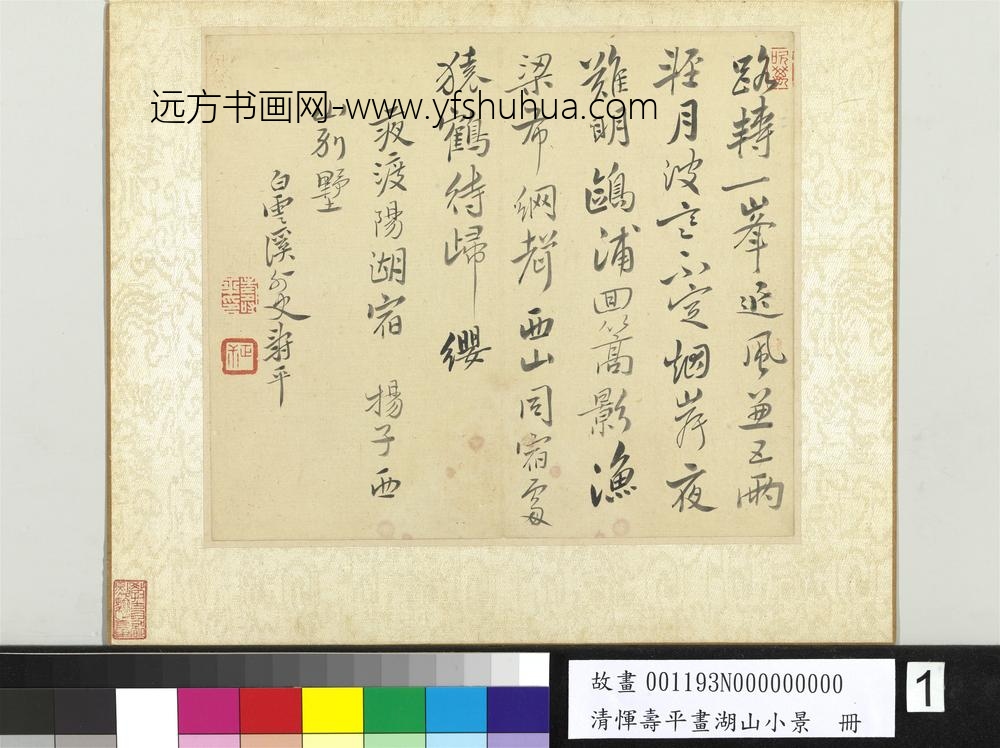 路轉一峯迎風兼五兩
輕月波看不定烟岸夜
難明鷗浦回篙影漁
梁布網聲西山同宿處
猿鶴待歸纓
夜渡陽湖宿 楊子西
山別墅
白雲溪外史壽平
远方书画网-www.yfshuhua.com
故畫 001193N000000000
清惲壽平畫湖山小景 冊
1